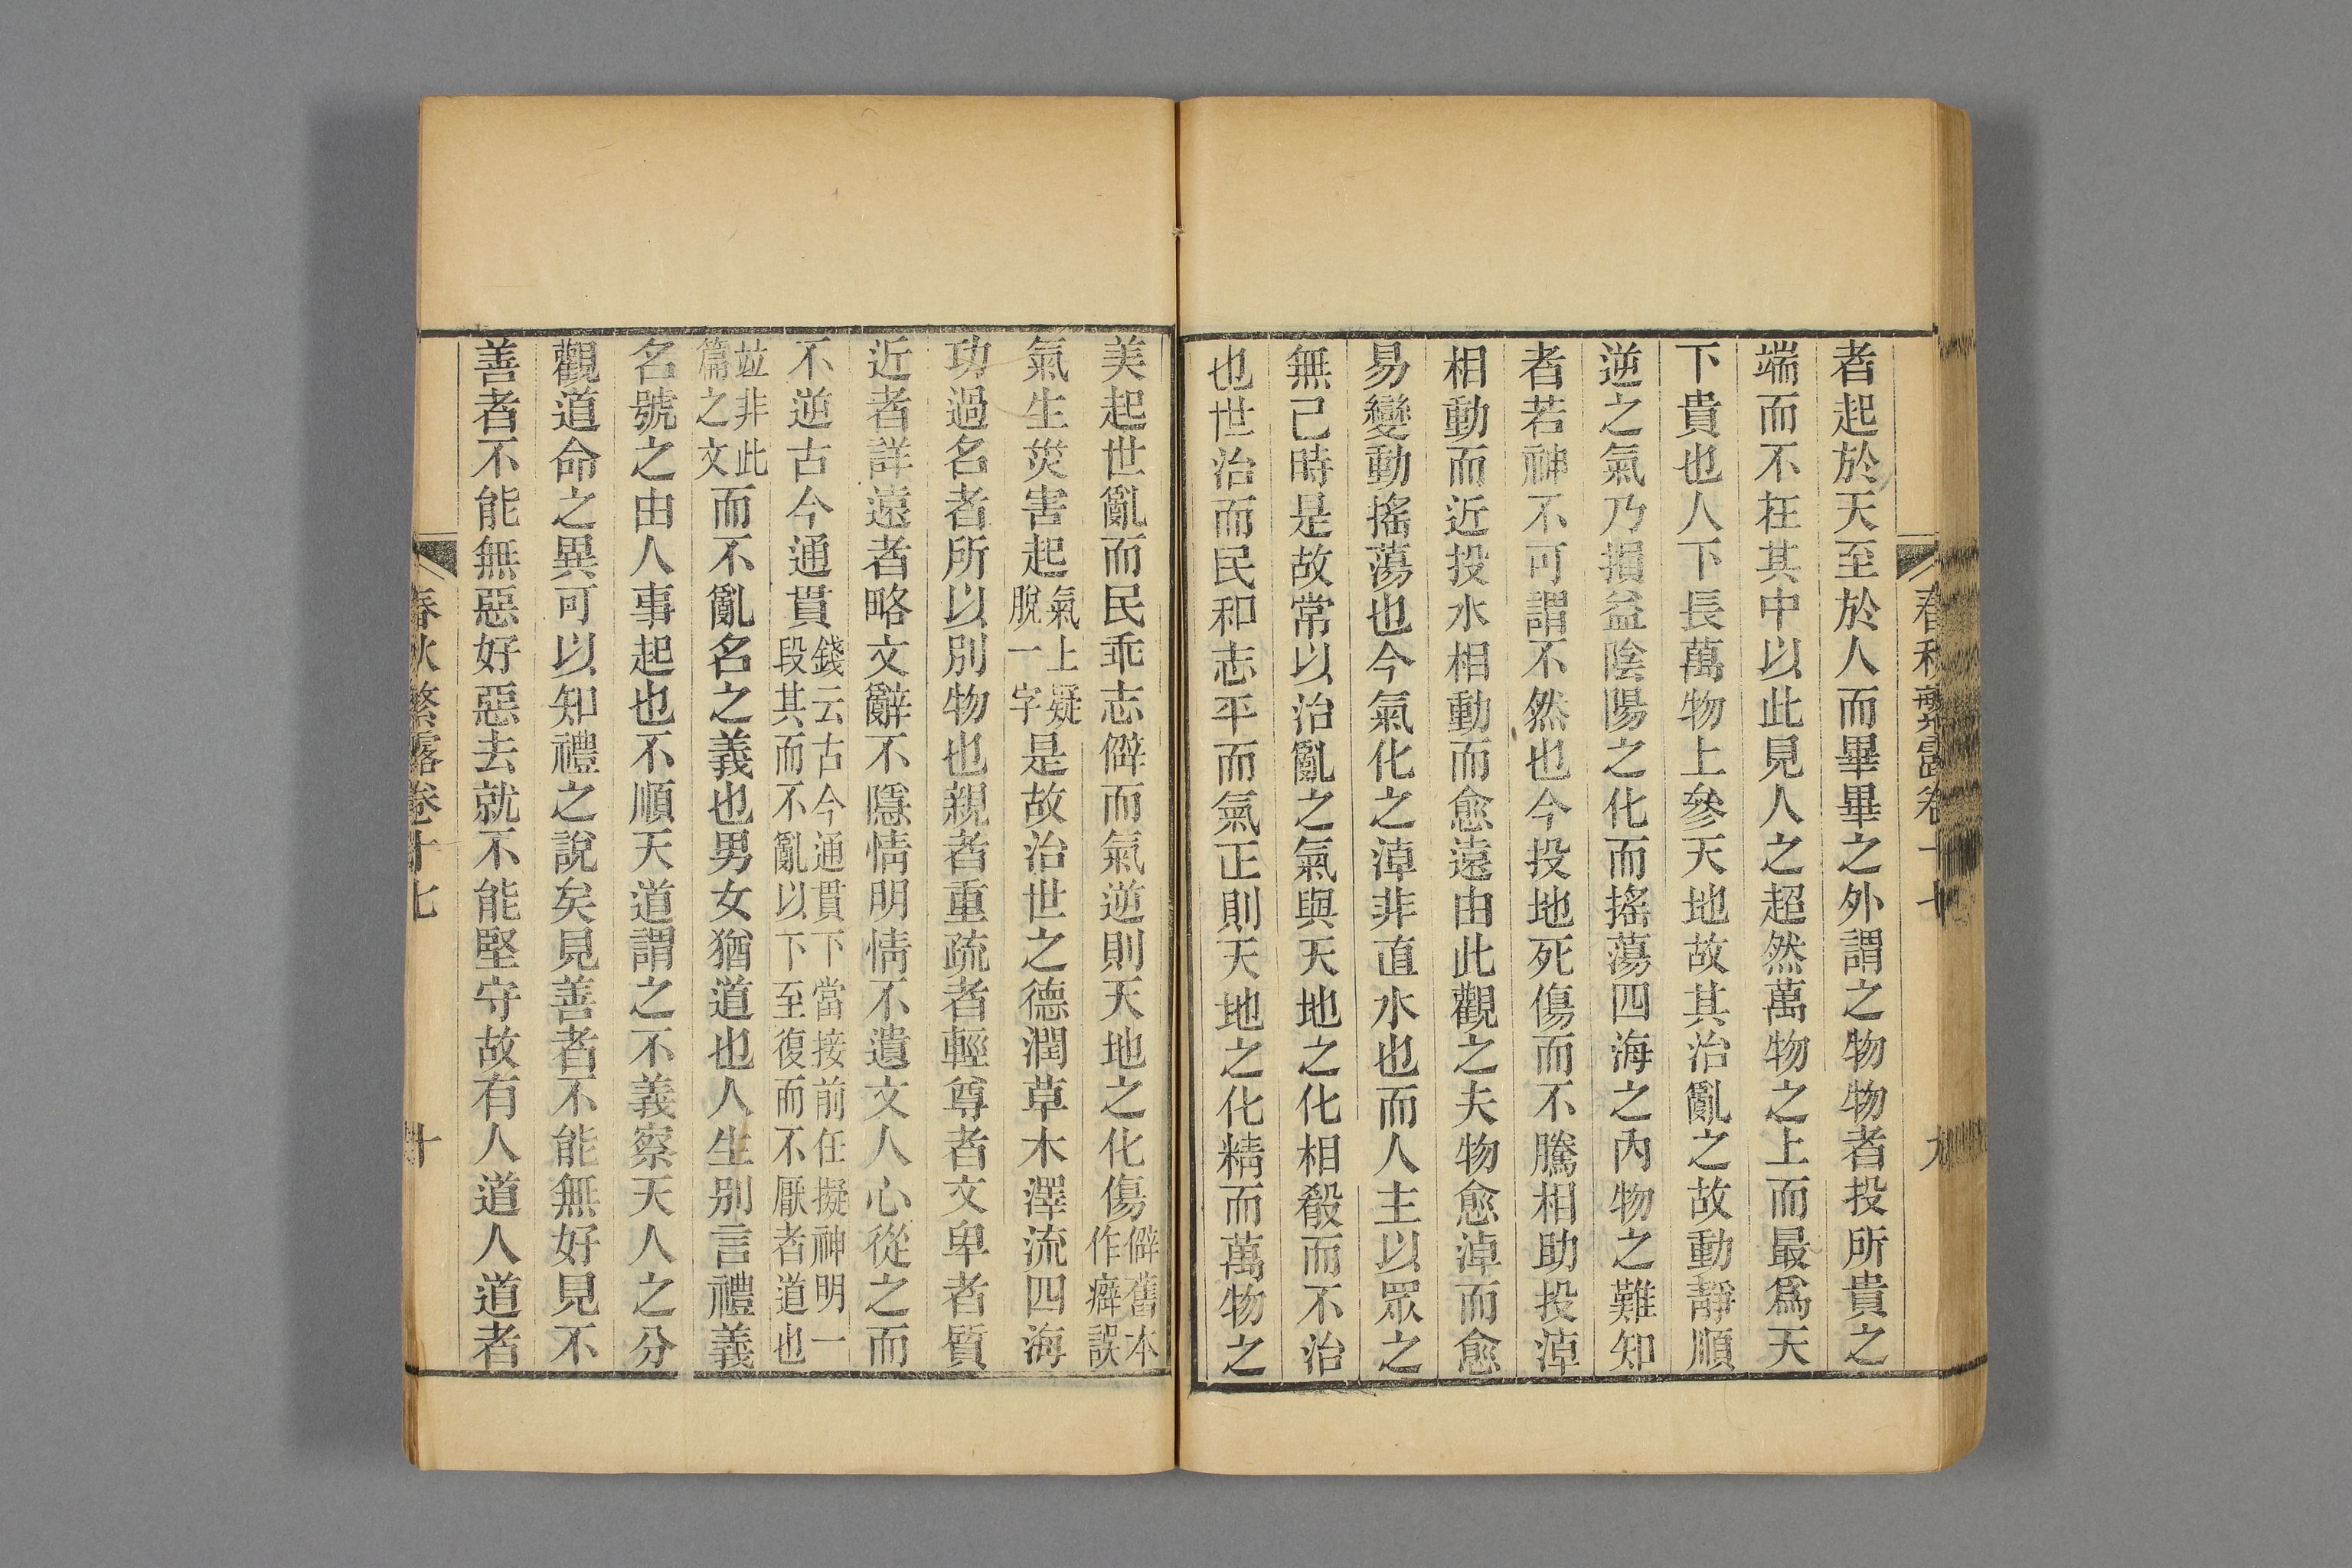 春秋繁露卷十七 九
者起於天至於人而畢畢之外謂之物物者投所貴之
端而不在其中以此見人之超然萬物之上而最爲天
下貴也人下長萬物上參天地故其治亂之故動靜順
逆之氣乃損益陰陽之化而搖蕩四海之內物之難知
者若神不可謂不然也今投地死傷而不騰相助投淖
相動而近投水相動而愈遠由此觀之夫物愈淖而愈
易變動搖蕩也今氣化之淖非直水也而人主以眾之
無已時是故常以治亂之氣與天地之化相殽而不治
也世治而民和志平而氣正則天地之化精而萬物之
美起世亂而民乖志僻而氣逆則天地之化傷僻舊本作癖誤
氣生災害起氣上疑脫一字是故治世之德潤草木澤流四海
功過名者所以別物也親者重疏者輕尊者文卑者質
近者詳遠者略文辭不隱情明情不遺文人心從之而
不逆古今通貫錢云古今通貫下當接前任擬神明一段其而不亂以下至復而不厭者道也
竝非此篇之文而不亂名之義也男女猶道也人生别言禮義
名號之由人事起也不順天道謂之不義察天人之分
觀道命之異可以知禮之說矣見善者不能無好見不
善者不能無惡好惡去就不能堅守故有人道人道者
春秋繁露卷十七 十